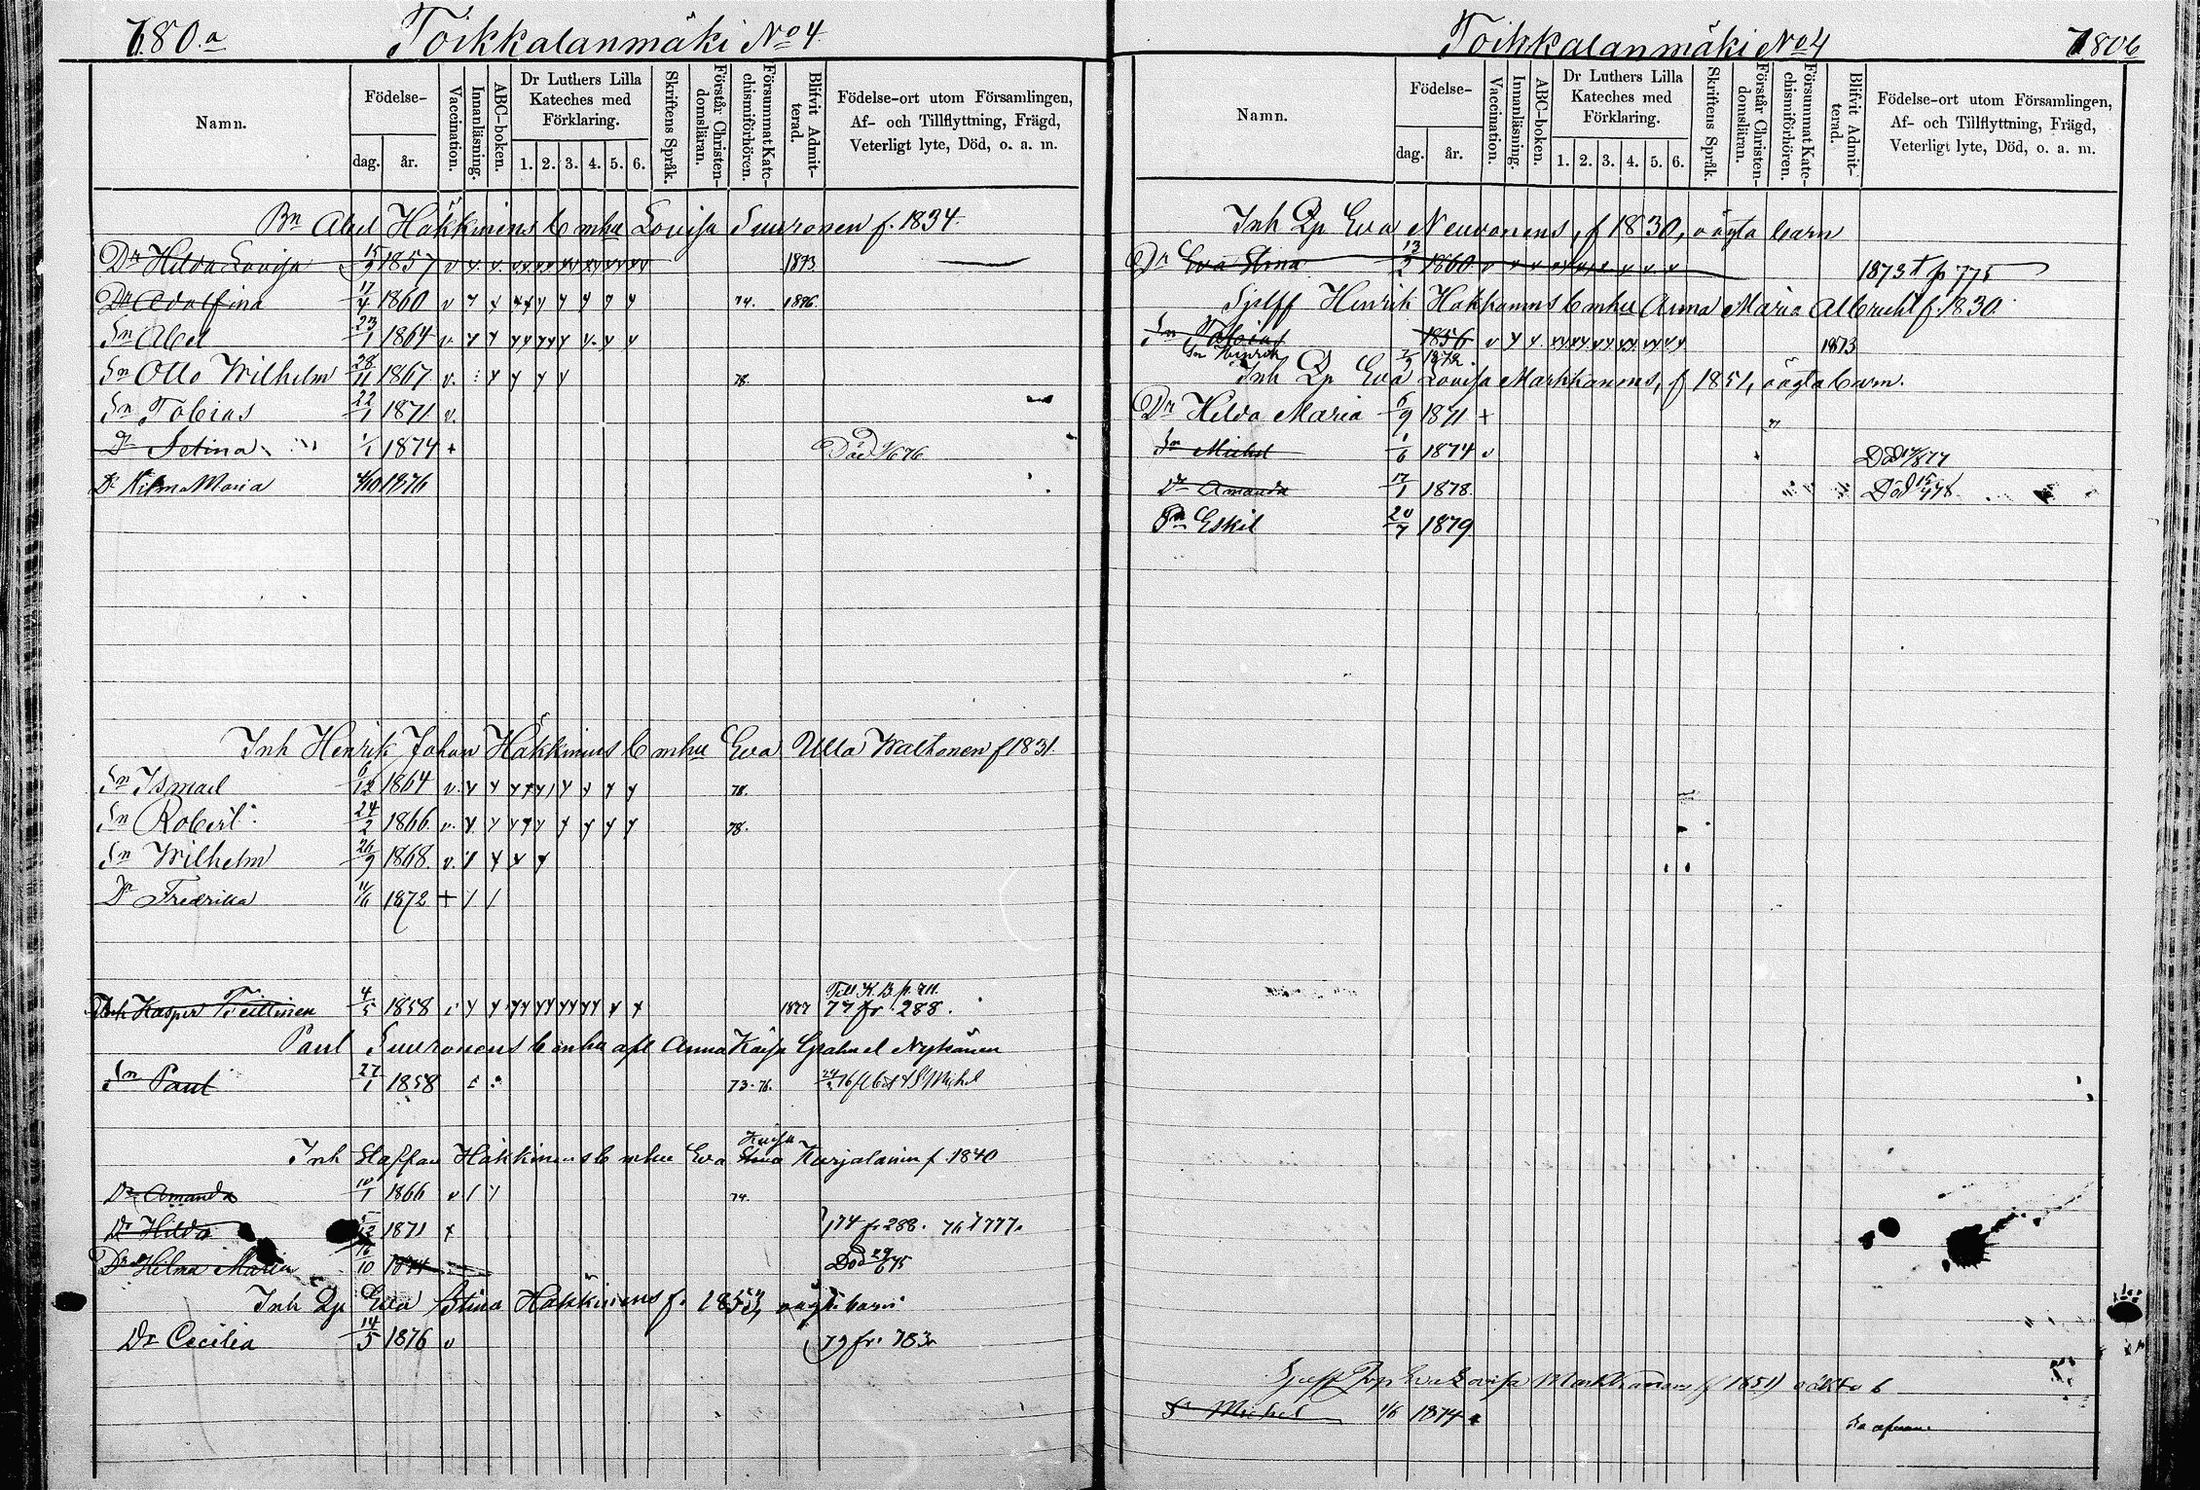 780.a Toikkalanmäki No 4
Namn. Födelse- dag. år. Vaccination. Innanläsning. ABC-boken. Dr Luthers Lilla Kateches med Förklaring. 1. 2. 3. 4. 5. 6. Skriftens Språk. Förstår Christendomsläran. Försummat Katechismiförhören. Blifvit Admitterad. Födelse-ort utom Församlingen, Af- och Tillflyttning, Frägd, Veterligt lyte, Död, o. a. m.
Bn Abel Häkkinens b mhu Lovisa Suuronen f. 1834.
Dr Hilda Lovisa 15/9 1857 v 1873
Dr Adolfina 17/4 1860 v 74. 1876.
Sn Abel 23/1 1864 v
Sn Otto Wilhelm 28/11 1867 v. 78.
Sn Tobias 22/1 1871 v.
Dr Setina 1/1 1874 + Död 76
Dr Hilma Maria 1876
Inh Henrik Johan Häkkinens b mhu Eva Ulla Walthonen f 1831.
Sn Ismael 6/12 1864 v. 78.
Sn Robert 24/2 1866. v. 78.
Sn Wilhelm 26/9 1868. v.
Dr Fredrika 11/6 1872 +
Till K.B. p. 711
Inh Kasper Teittinen 4/5 1858 1877 77 fr 288.
Paul Suuronens b mhu afl Anna Kaisa Grahnel Nykänen
Sn Paul 27/1 1858 73-76. St Michel
Kaisa
Inh Staffan Häkkinens b mhu Eva Stina Karjalainen f. 1840
Dr Amanda 10/1 1866 v 74.
Dr Hilda 5/12 1871 + 174 fr 288. 76 t 777.
Dr Helma Maria 16/10 1874 Död 29/6 75
Inh Qp Eva Stina Häkkinens f. oägta barn
Dr Cecilia 14/5 1876 v 79 fr. 783
Toikkalanmäki No 4 780b
Namn. Födelse- dag. år. Vaccination. Innanläsning. ABC-boken. Dr Luthers Lilla Kateches med Förklaring. 1. 2. 3. 4. 5. 6. Skriftens Språk. Förstår Christendomsläran. Försummat Katechismiförhören. Blifvit Admitterad. Födelse-ort utom Församlingen, Af- och Tillflyttning, Frägd, Veterligt lyte, Död, o. a. m.
Inh Qp Eva Neuvonens, f 1830, oägta barn
Dr Eva Stina 13/2 1860 v 1873 t p 775
Sjelff Henrik Hokkanens b mhu Anna Maria Albrecht f. 1830.
Sn Tobias 1856 v 1873
Sn Henrik 1872.
Inh Qp Eva Lovisa Markkanens, f 1851, oägta barn.
Dr Hilda Maria 6/9 1871 +
Sn Michel 1/6 1874 v Död 77
Dr Amanda 17/1 1878. Död 15/4 78.
Sn Eskil 20/7 1879
Sjelff Lovisa Markkanens (f 1851) b
Sn Michel 1/6 1874